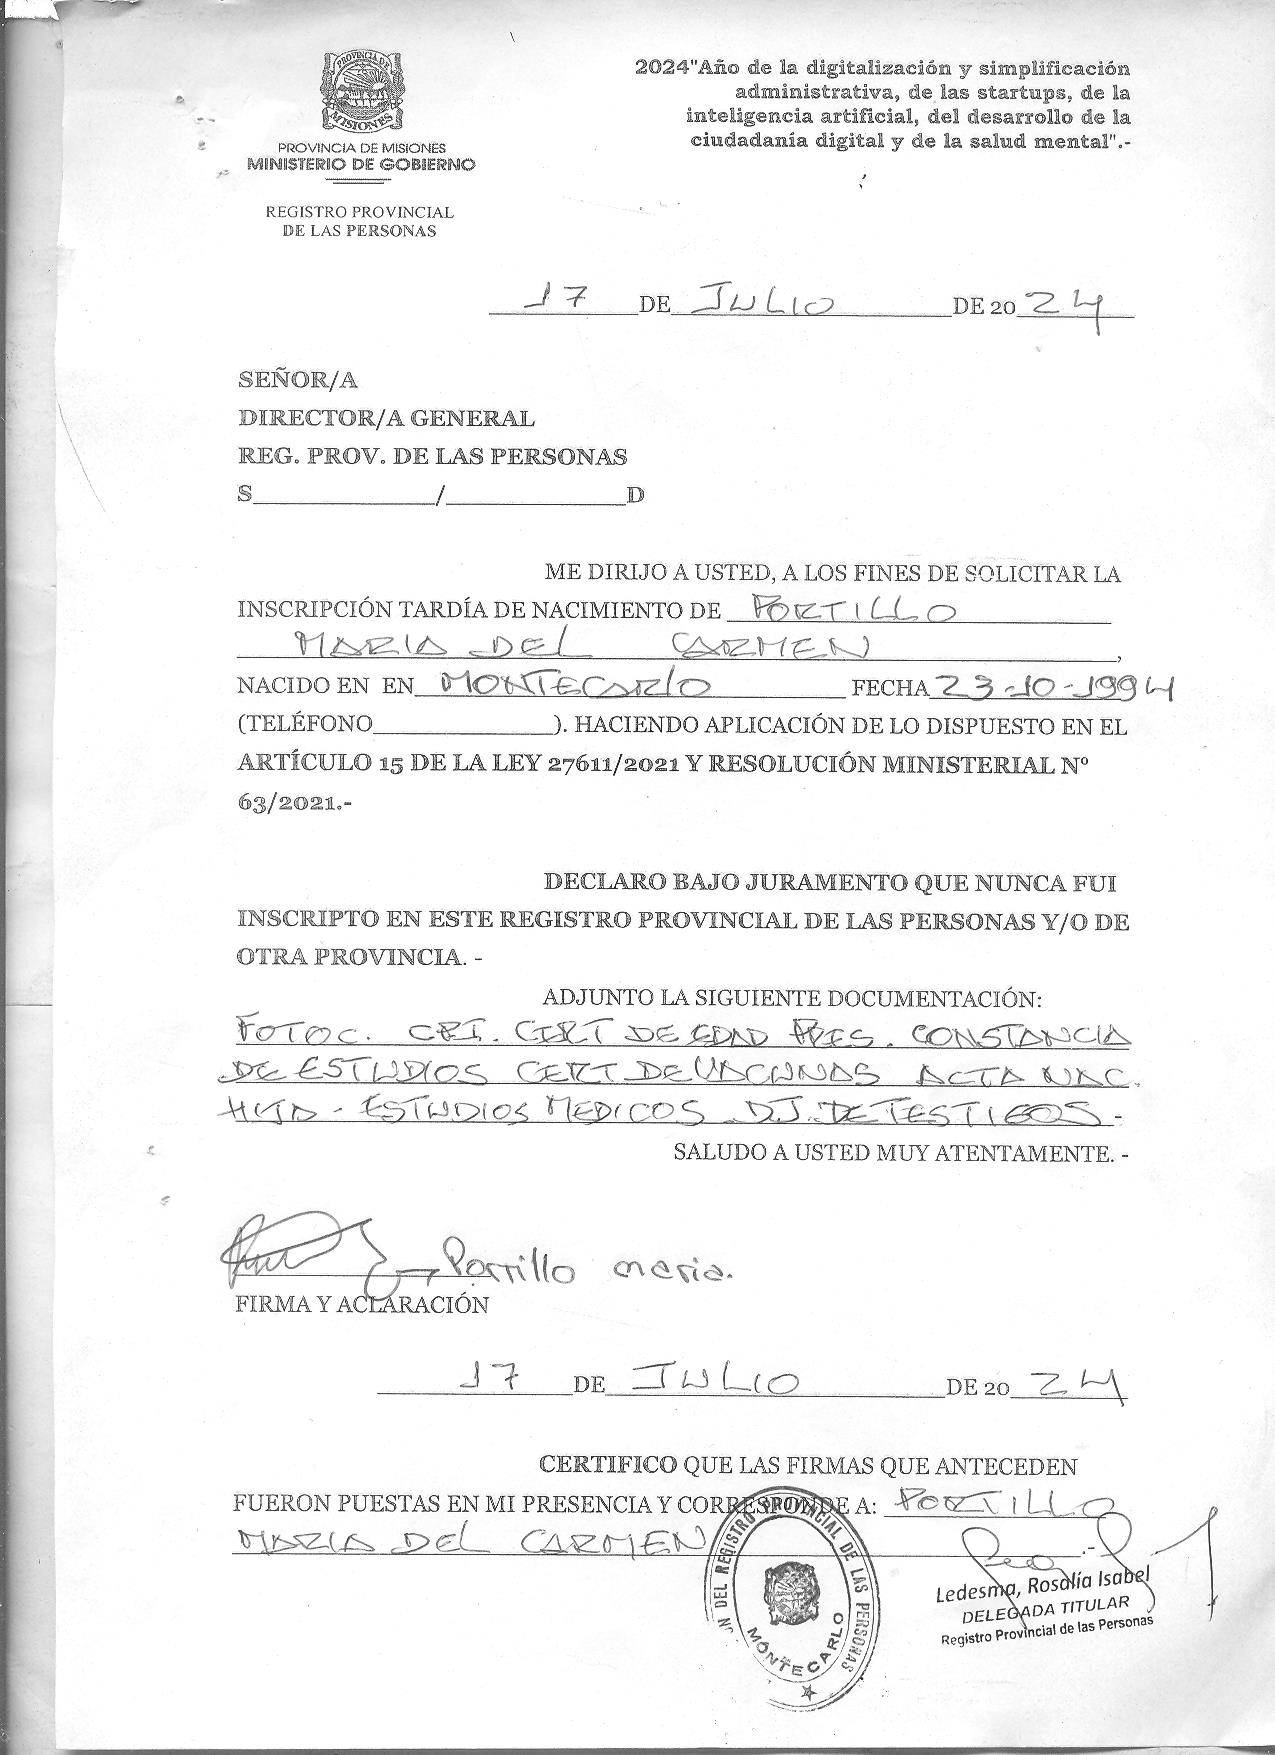 PROVINCIA DE
MISIONES
PROVINCIA DE MISIONES
MINISTERIO DE GOBIERNO
REGISTRO PROVINCIAL
DE LAS PERSONAS
2024"Año de la digitalización y simplificación
administrativa, de las startups, de la
inteligencia artificial, del desarrollo de la
ciudadanía digital y de la salud mental".-
17 DE JULIO DE 2024
SEÑOR/A
DIRECTOR/A GENERAL
REG. PROV. DE LAS PERSONAS
S______________/______________D
ME DIRIJO A USTED, A LOS FINES DE SOLICITAR LA
INSCRIPCIÓN TARDÍA DE NACIMIENTO DE PORTILLO
MARIA DEL CARMEN,
NACIDO EN EN MONTECARLO FECHA 23-10-1994
(TELÉFONO______________). HACIENDO APLICACIÓN DE LO DISPUESTO EN EL
ARTÍCULO 15 DE LA LEY 27611/2021 Y RESOLUCIÓN MINISTERIAL Nº
63/2021.-
DECLARO BAJO JURAMENTO QUE NUNCA FUI
INSCRIPTO EN ESTE REGISTRO PROVINCIAL DE LAS PERSONAS Y/O DE
OTRA PROVINCIA. -
ADJUNTO LA SIGUIENTE DOCUMENTACIÓN:
FOTOC. CPI. CERT DE EDAD PRES. CONSTANCIA
DE ESTUDIOS CERT DE VACUNAS ACTA NAC.
HIJA - ESTUDIOS MEDICOS DJ. DE TESTIGOS -
SALUDO A USTED MUY ATENTAMENTE. -
Portillo maria.
FIRMA Y ACLARACIÓN
17 DE JULIO DE 2024
CERTIFICO QUE LAS FIRMAS QUE ANTECEDEN
FUERON PUESTAS EN MI PRESENCIA Y CORRESPONDE A: PORTILLO
MARIA DEL CARMEN .-
N DEL REGISTRO PROVINCIAL DE LAS PERSONAS
MONTECARLO
Ledesma, Rosalía Isabel
DELEGADA TITULAR
Registro Provincial de las Personas